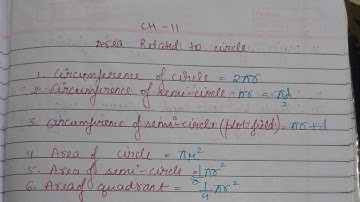 CH - 11
Area Related to circle.
1. Circumference of circle = 2πr
2. Circumference of semi-circle = πr = πd/2
3. Circumference of semi circle (plot-field) = πr + d
4. Area of circle = πr²
5. Area of semi-circle = 1/2 πr²
6. Area of quadrant = 1/4 πr²